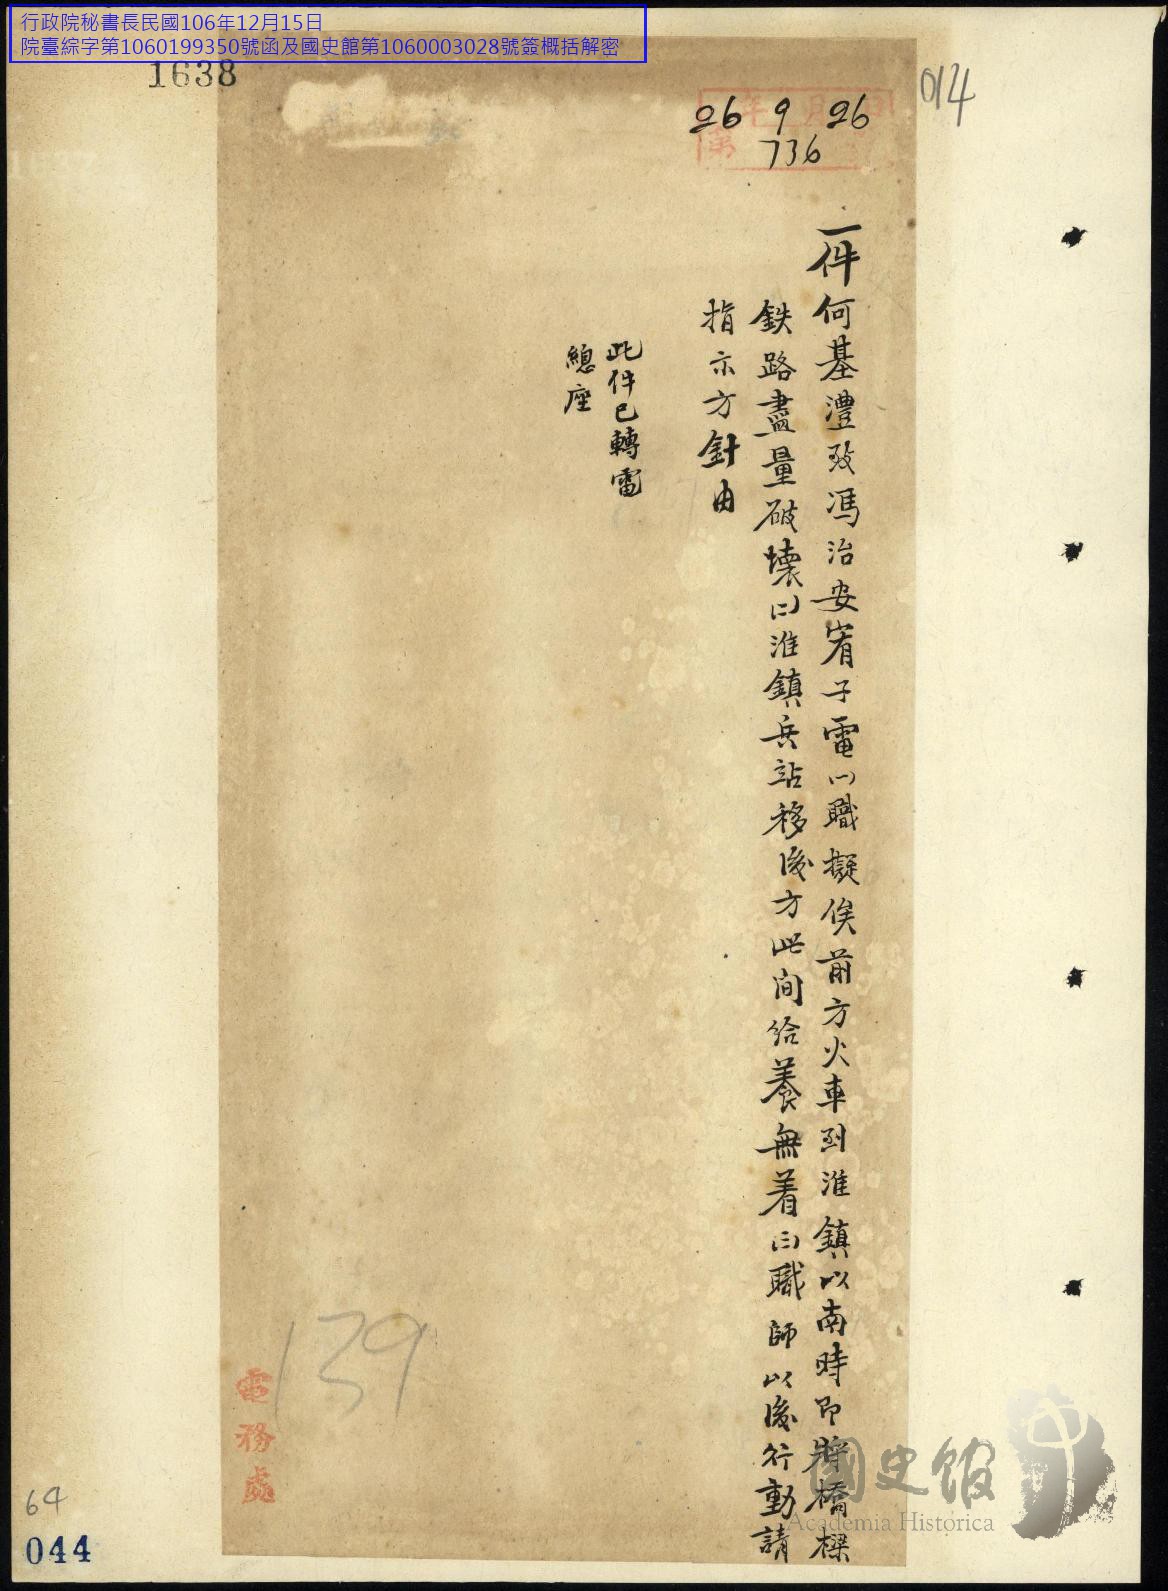 行政院秘書長民國106年12月15日
院臺綜字第1060199350號函及國史館第1060003028號簽概括解密
1638
014
26 9 26
736
一件何基澧致馮治安宥子電㈠職擬俟前方火車到淮鎮以南時即將橋樑
鉄路盡量破壞㈡淮鎮兵站移後方此间給養無着㈢職師以後行動請
指示方針由
此件已轉電
總座
139
電務處
64
044
國史館
Academia Historica